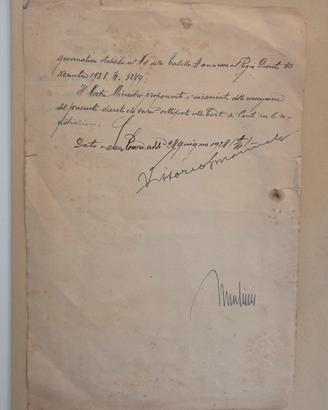 governativo stabilito al N° della Tabella annessa al Regio Decreto
dicembre 1928 N. 3249.
Il Nostro Ministro proponente è incaricato della esecuzione
del presente decreto che sarà sottoposto alla Corte dei Conti per la re-
gistrazione.
Dato a San Rossore addì giugno 1928
Vittorio Emanuele
Mussolini